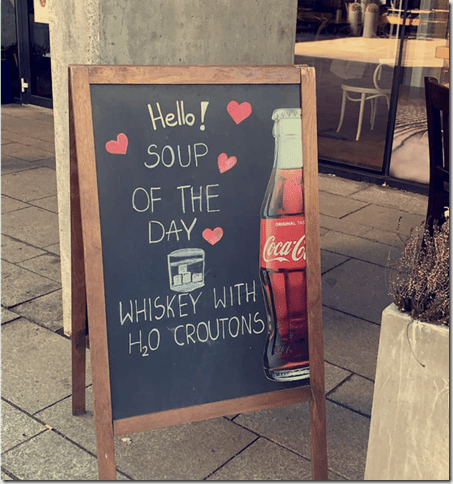 Hello!
SOUP
OF THE
DAY
WHISKEY WITH
H₂O CROUTONS
ORIGINAL TA
Coca-C